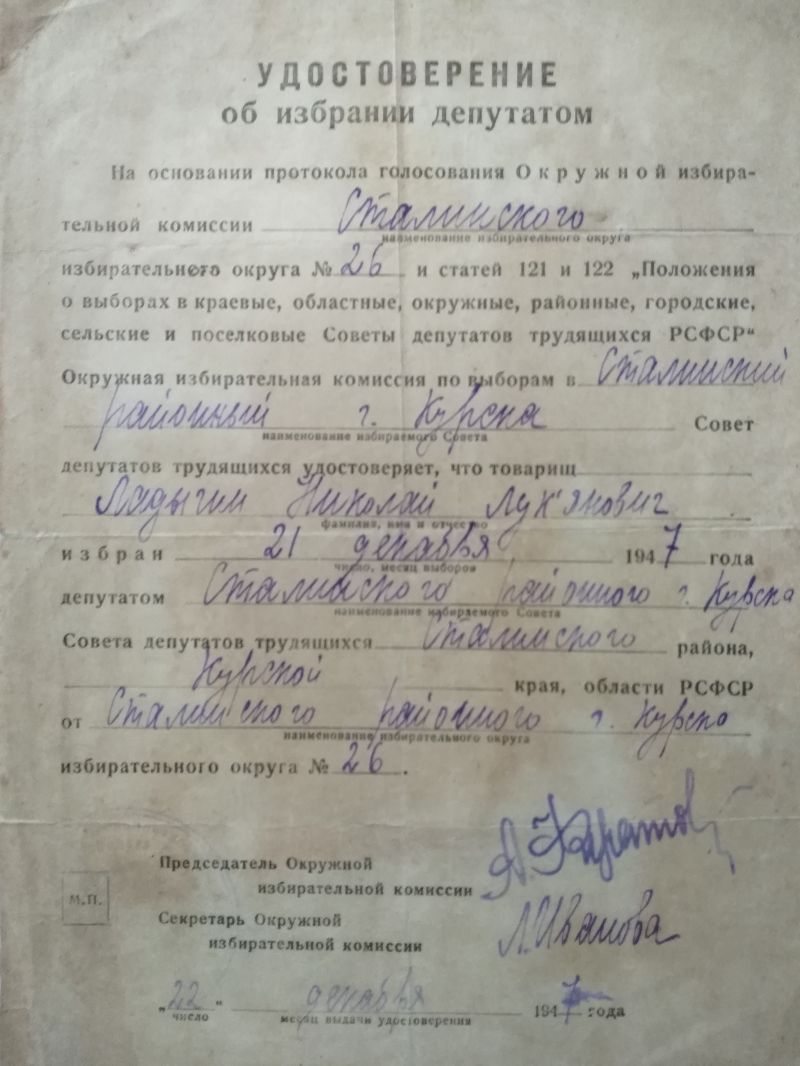 УДОСТОВЕРЕНИЕ
об избрании депутатом
На основании протокола голосования Окружной избира-
тельной комиссии Сталинского
наименование избирательного округа
избирательного округа № 26 и статей 121 и 122 „Положения
о выборах в краевые, областные, окружные, районные, городские,
сельские и поселковые Советы депутатов трудящихся РСФСР“
Окружная избирательная комиссия по выборам в Сталинский
районный г. Курска Совет
наименование избираемого Совета
депутатов трудящихся удостоверяет, что товарищ
Ладыгин Николай Лук'янович
фамилия, имя и отчество
избран 21 декабря 1947 года
число, месяц выборов
депутатом Сталинского районного г. Курска
наименование избираемого Совета
Совета депутатов трудящихся Сталинского района,
Курской края, области РСФСР
от Сталинского районного г. Курска
наименование избирательного округа
избирательного округа № 26.
Председатель Окружной
избирательной комиссии
М.П.
Секретарь Окружной
избирательной комиссии Л.Иванова
„22“ декабря 1947 года
число месяц выдачи удостоверения